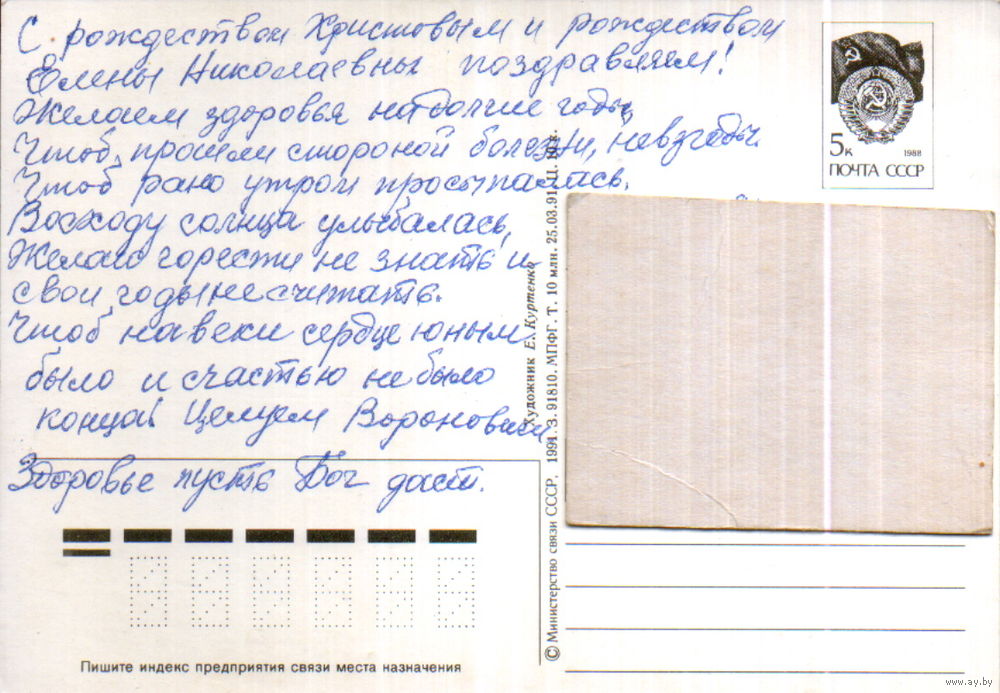 С рождеством Христовым и рождеством
Елены Николаевны поздравляем!
Желаем здоровья на долгие годы,
Чтоб прошли стороной болезни, невзгоды.
Чтоб рано утром просыпалась,
Восходу солнца улыбалась,
Желаю горести не знать и
свои годы не считать.
Чтоб навеки сердце юным
было и счастью не было
конца! Целуем Вороновичи
Здоровье пусть Бог даст.
Пишите индекс предприятия связи места назначения
© Министерство связи СССР, 1991. З. 91810. МПФГ. Т. 10 млн. 25.03.91. Ц. 10 к.
Художник Е. Куртенко
5к
1988
ПОЧТА СССР
www.ay.by